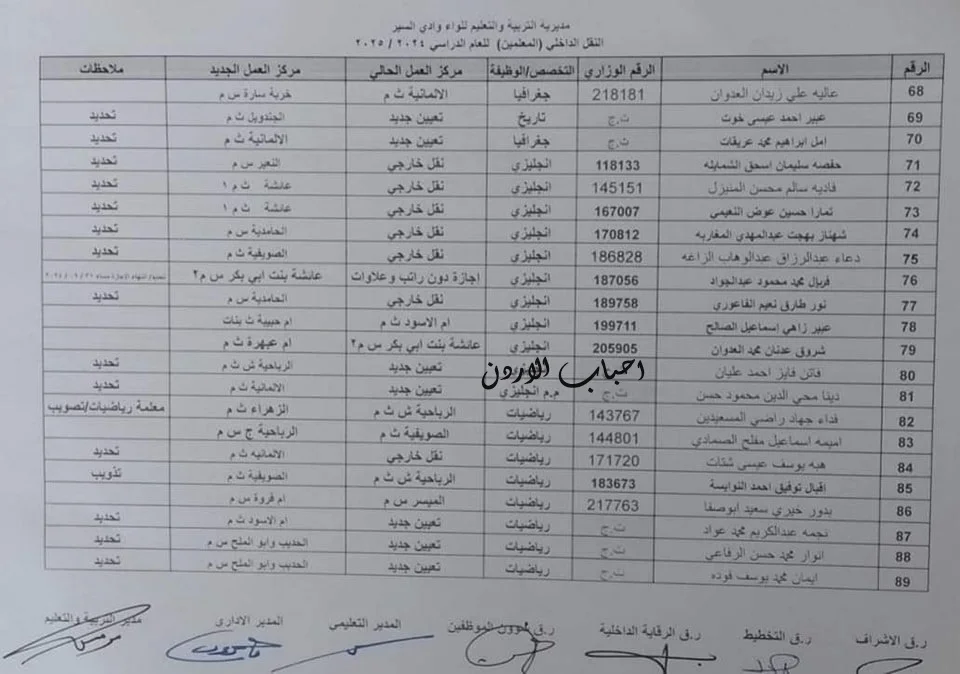 مديرية التربية والتعليم للواء وادي السير
النقل الداخلي (المعلمين) للعام الدراسي ٢٠٢٤ / ٢٠٢٥
الرقم الاسم الرقم الوزاري التخصص/الوظيفة مركز العمل الحالي مركز العمل الجديد ملاحظات
68 عاليه علي زيدان العدوان 218181 جغرافيا الالمانية ث م خربة سارة س م
69 عبير احمد عيسى خوت ت.ج تاريخ تعيين جديد الجندويل ث م تحديد
70 امل ابراهيم محمد عريقات ت.ج جغرافيا تعيين جديد الالمانية ث م تحديد
71 حفصه سليمان اسحق الشمايله 118133 انجليزي نقل خارجي النعير س م تحديد
72 فاديه سالم محسن المنيزل 145151 انجليزي نقل خارجي عائشة ث م ١ تحديد
73 تمارا حسين عوض النعيمي 167007 انجليزي نقل خارجي عائشة ث م ١ تحديد
74 شهناز بهجت عبدالمهدي المغاربه 170812 انجليزي نقل خارجي الحامدية س م تحديد
75 دعاء عبدالرزاق عبدالوهاب الزاغه 186828 انجليزي نقل خارجي الصويفية ث م تحديد
76 فريال محمد محمود عبدالجواد 187056 انجليزي اجازة دون راتب وعلاوات عائشة بنت ابي بكر س م٢
77 نور طارق نعيم الفاعوري 189758 انجليزي نقل خارجي الحامدية س م تحديد
78 عبير زاهي اسماعيل الصالح 199711 انجليزي ام الاسود ث م ام حبيبة ث بنات
79 شروق عدنان محمد العدوان 205905 انجليزي عائشة بنت ابي بكر س م٢ ام عبهرة ث م
80 فاتن فايز احمد عليان تعيين جديد الرباحية ش ث م تحديد
احباب الاردن
81 دينا محي الدين محمود حسن ت.ج م.م انجليزي تعيين جديد الالمانية ث م تحديد
82 فداء جهاد راضي المسعيدين 143767 رياضيات الرباحية ش ث م الزهراء ث م معلمة رياضيات/تصويب
83 اميمه اسماعيل مفلح الصمادي 144801 رياضيات الصويفية ث م الرباحية ج س م
84 هبه يوسف عيسى شتات 171720 رياضيات نقل خارجي الالمانيه ث م تحديد
85 اقبال توفيق احمد النوايسة 183673 رياضيات الرباحية ش ث م الصويفية ث م تذويب
86 بدور خيري سعيد ابوصفا 217763 رياضيات الميسر س م ام فروة س م
87 نجمه عبدالكريم محمد عواد ت.ج رياضيات تعيين جديد ام الاسود ث م تحديد
88 انوار محمد حسن الرفاعي ت.ج رياضيات تعيين جديد الحديب وابو الملح س م تحديد
89 ايمان محمد يوسف فوده ت.ج رياضيات تعيين جديد الحديب وابو الملح س م تحديد
ر.ق الاشراف ر.ق التخطيط ر.ق الرقابة الداخلية ر.ق شؤون الموظفين المدير التعليمي المدير الاداري مدير التربية والتعليم